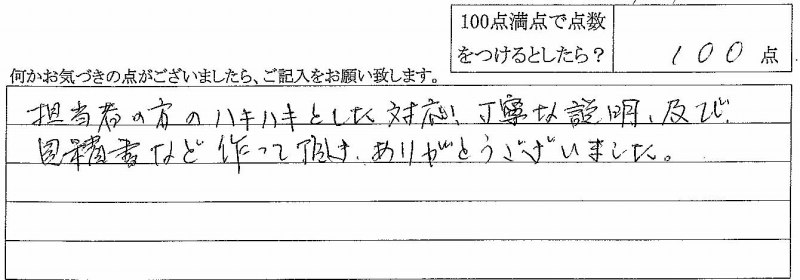 100点満点で点数
をつけるとしたら？
100点
何かお気づきの点がございましたら、ご記入をお願い致します。
担当者の方のハキハキとした対応！丁寧な説明、及び
見積書など作って頂き、ありがとうございました。